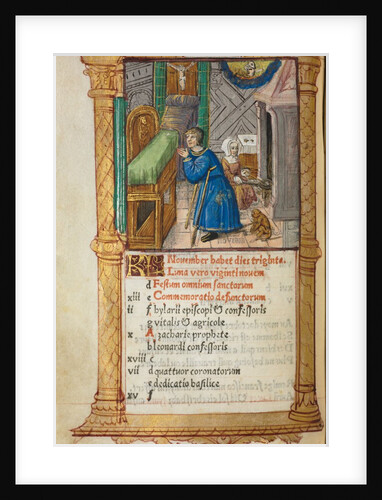 KL November habet dies triginta.
Luna vero viginti novem
d Festum omnium sanctorum
xiii e Commemoratio defunctorum
ii f hylarii episcopi & confessoris
g vitalis & agricole
x A zacharie prophete
b leonardi confessoris
xviii c
vii d quattuor coronatorum
e dedicatio basilice
xv f